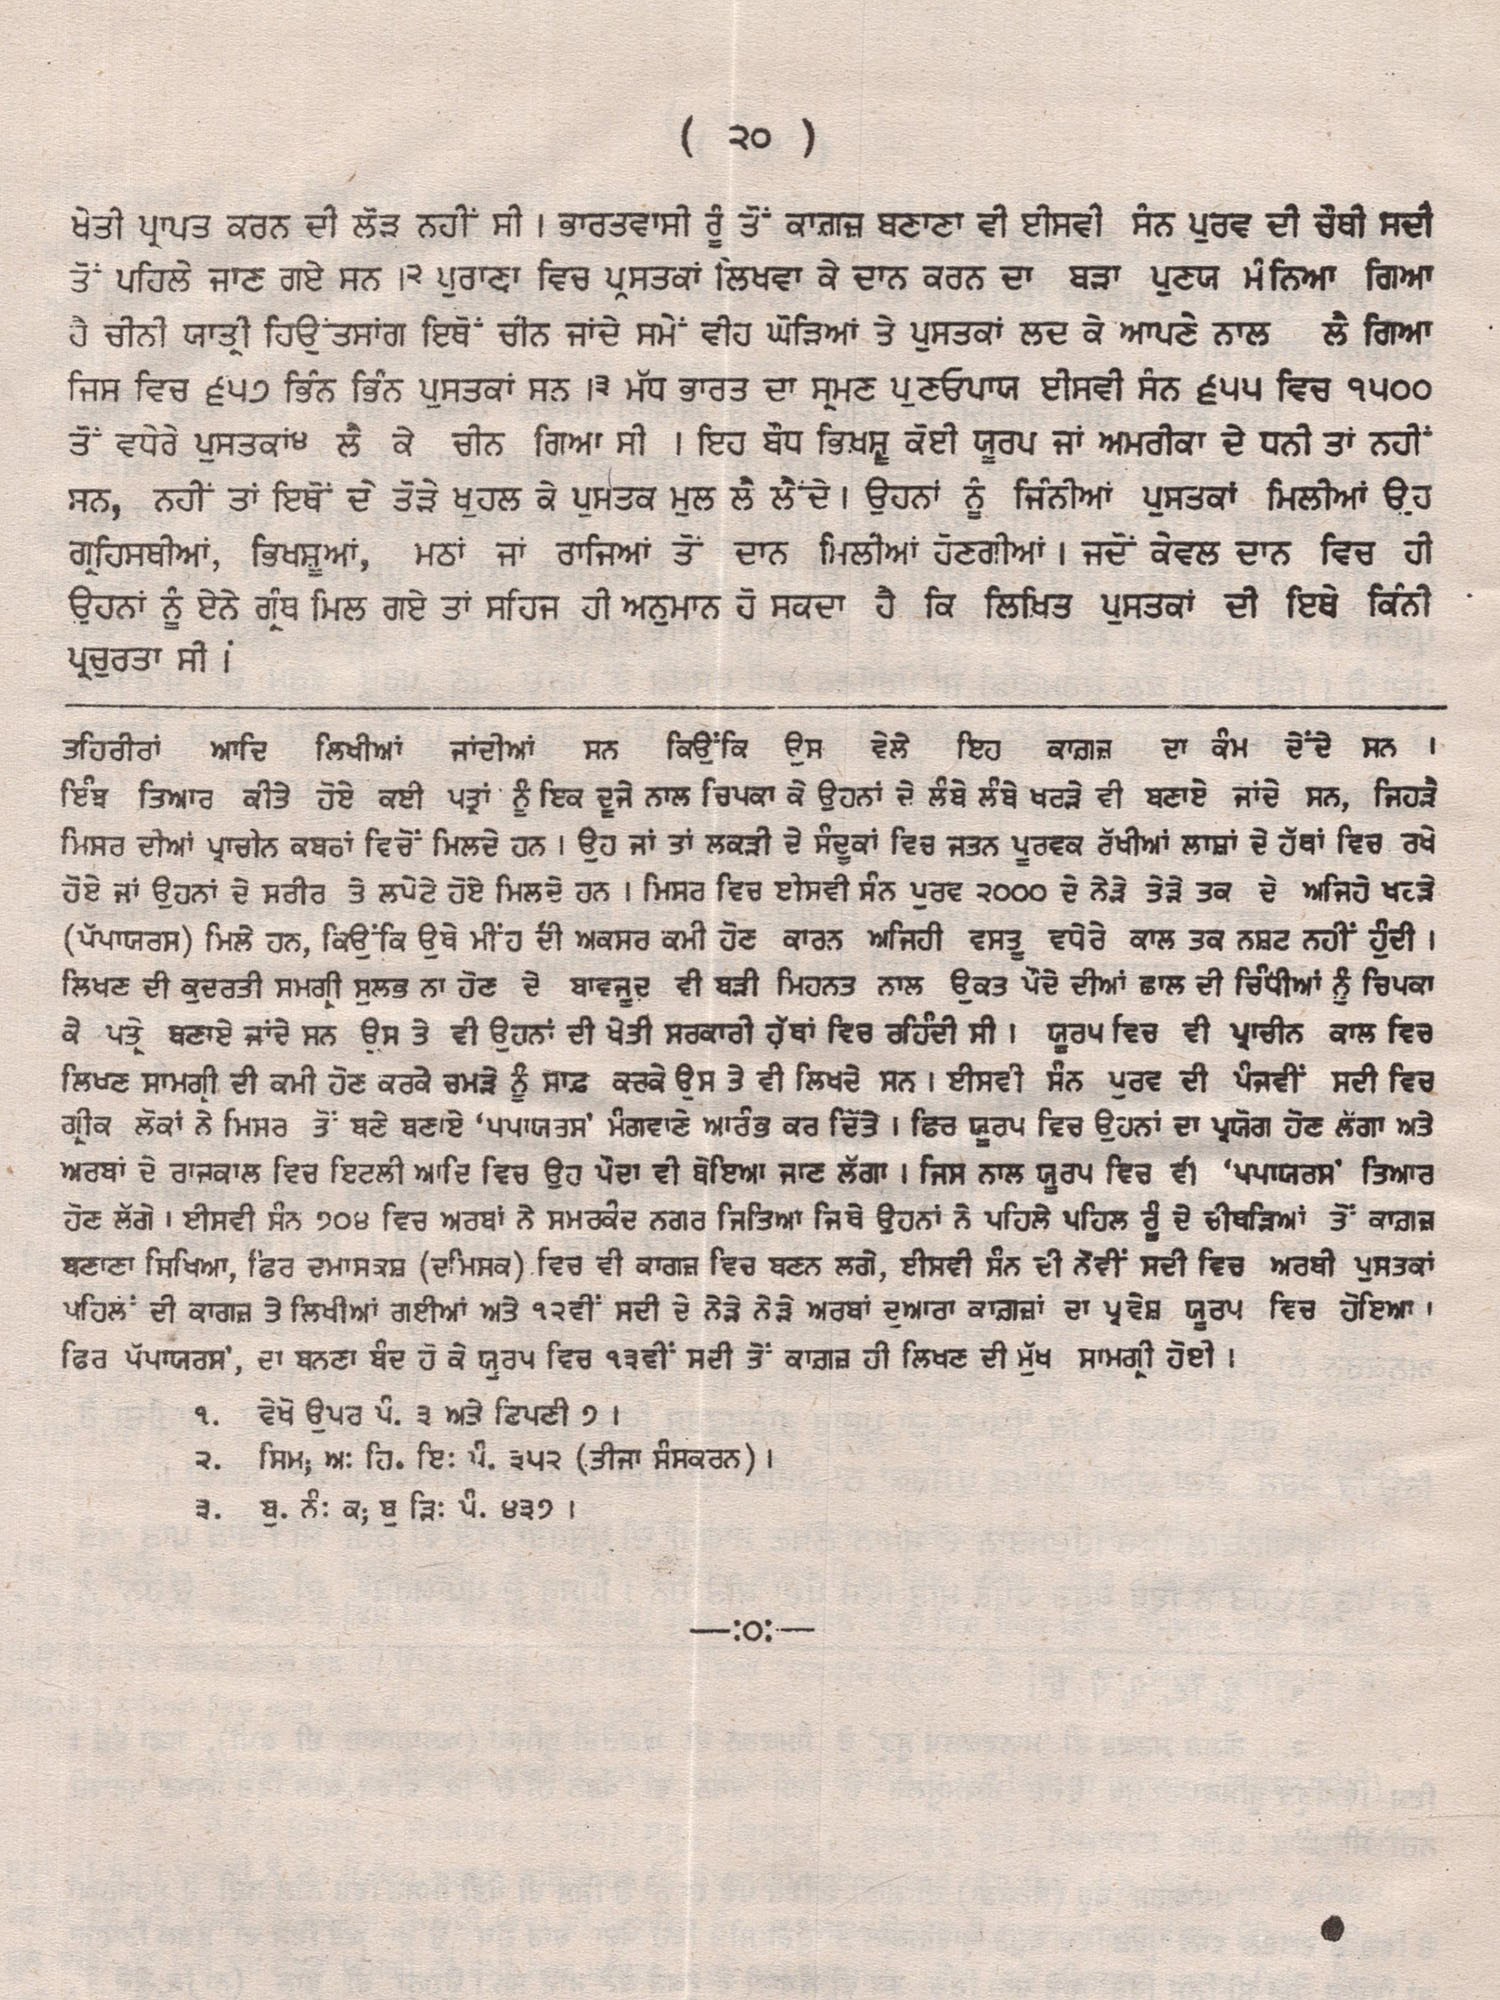 ( ੨੦ )
ਖੇਤੀ ਪ੍ਰਾਪਤ ਕਰਨ ਦੀ ਲੋੜ ਨਹੀਂ ਸੀ । ਭਾਰਤਵਾਸੀ ਰੂੰ ਤੋਂ ਕਾਗ਼ਜ਼ ਬਣਾਣਾ ਵੀ ਈਸਵੀ ਸੰਨ ਪੂਰਵ ਦੀ ਚੌਥੀ ਸਦੀ
ਤੋਂ ਪਹਿਲੇ ਜਾਣ ਗਏ ਸਨ ।੨ ਪੁਰਾਣਾ ਵਿਚ ਪੁਸਤਕਾਂ ਲਿਖਵਾ ਕੇ ਦਾਨ ਕਰਨ ਦਾ ਬੜਾ ਪੁਣਯ ਮੰਨਿਆ ਗਿਆ
ਹੈ ਚੀਨੀ ਯਾਤ੍ਰੀ ਹਿਉਂਤਸਾਂਗ ਇਥੋਂ ਚੀਨ ਜਾਂਦੇ ਸਮੇਂ ਵੀਹ ਘੋੜਿਆਂ ਤੇ ਪੁਸਤਕਾਂ ਲਦ ਕੇ ਆਪਣੇ ਨਾਲ ਲੈ ਗਿਆ
ਜਿਸ ਵਿਚ ੬੫੭ ਭਿੰਨ ਭਿੰਨ ਪੁਸਤਕਾਂ ਸਨ ।੩ ਮੱਧ ਭਾਰਤ ਦਾ ਸ੍ਰਮਣ ਪੁਣਓਪਾਯ ਈਸਵੀ ਸੰਨ ੬੫੫ ਵਿਚ ੧੫੦੦
ਤੋਂ ਵਧੇਰੇ ਪੁਸਤਕਾਂ੪ ਲੈ ਕੇ ਚੀਨ ਗਿਆ ਸੀ । ਇਹ ਬੌਧ ਭਿਖਸ਼ੂ ਕੋਈ ਯੂਰਪ ਜਾਂ ਅਮਰੀਕਾ ਦੇ ਧਨੀ ਤਾਂ ਨਹੀਂ
ਸਨ, ਨਹੀਂ ਤਾਂ ਇਥੋਂ ਦੇ ਤੋੜੇ ਖੁਹਲ ਕੇ ਪੁਸਤਕ ਮੁਲ ਲੈ ਲੈਂਦੇ । ਉਹਨਾਂ ਨੂੰ ਜਿੰਨੀਆਂ ਪੁਸਤਕਾਂ ਮਿਲੀਆਂ ਉਹ
ਗ੍ਰਹਿਸਥੀਆਂ, ਭਿਖਸ਼ੂਆਂ, ਮਠਾਂ ਜਾਂ ਰਾਜਿਆਂ ਤੋਂ ਦਾਨ ਮਿਲੀਆਂ ਹੋਣਗੀਆਂ । ਜਦੋਂ ਕੇਵਲ ਦਾਨ ਵਿਚ ਹੀ
ਉਹਨਾਂ ਨੂੰ ਏਨੇ ਗ੍ਰੰਥ ਮਿਲ ਗਏ ਤਾਂ ਸਹਿਜ ਹੀ ਅਨੁਮਾਨ ਹੋ ਸਕਦਾ ਹੈ ਕਿ ਲਿਖਿਤ ਪੁਸਤਕਾਂ ਦੀ ਇਥੇ ਕਿੰਨੀ
ਪ੍ਰਚੁਰਤਾ ਸੀ ।
ਤਹਿਰੀਰਾਂ ਆਦਿ ਲਿਖੀਆਂ ਜਾਂਦੀਆਂ ਸਨ ਕਿਉਂਕਿ ਉਸ ਵੇਲੇ ਇਹ ਕਾਗ਼ਜ਼ ਦਾ ਕੰਮ ਦੇਂਦੇ ਸਨ ।
ਇੰਞ ਤਿਆਰ ਕੀਤੇ ਹੋਏ ਕਈ ਪਤ੍ਰਾਂ ਨੂੰ ਇਕ ਦੂਜੇ ਨਾਲ ਚਿਪਕਾ ਕੇ ਉਹਨਾਂ ਦੇ ਲੰਬੇ ਲੰਬੇ ਖਰੜੇ ਵੀ ਬਣਾਏ ਜਾਂਦੇ ਸਨ, ਜਿਹੜੇ
ਮਿਸਰ ਦੀਆਂ ਪ੍ਰਾਚੀਨ ਕਬਰਾਂ ਵਿਚੋਂ ਮਿਲਦੇ ਹਨ । ਉਹ ਜਾਂ ਤਾਂ ਲਕੜੀ ਦੇ ਸੰਦੂਕਾਂ ਵਿਚ ਜਤਨ ਪੂਰਵਕ ਰੱਖੀਆਂ ਲਾਸ਼ਾਂ ਦੇ ਹੱਥਾਂ ਵਿਚ ਰਖੇ
ਹੋਏ ਜਾਂ ਉਹਨਾਂ ਦੇ ਸਰੀਰ ਤੇ ਲਪੇਟੇ ਹੋਏ ਮਿਲਦੇ ਹਨ । ਮਿਸਰ ਵਿਚ ਈਸਵੀ ਸੰਨ ਪੂਰਵ ੨੦੦੦ ਦੇ ਨੇੜੇ ਤੇੜੇ ਤਕ ਦੇ ਅਜਿਹੇ ਖਰੜੇ
(ਪੱਪਾਯਰਸ) ਮਿਲੇ ਹਨ, ਕਿਉਂਕਿ ਉਥੇ ਮੀਂਹ ਦੀ ਅਕਸਰ ਕਮੀ ਹੋਣ ਕਾਰਨ ਅਜਿਹੀ ਵਸਤੂ ਵਧੇਰੇ ਕਾਲ ਤਕ ਨਸ਼ਟ ਨਹੀਂ ਹੁੰਦੀ ।
ਲਿਖਣ ਦੀ ਕੁਦਰਤੀ ਸਮਗ੍ਰੀ ਸੁਲਭ ਨਾ ਹੋਣ ਦੇ ਬਾਵਜੂਦ ਵੀ ਬੜੀ ਮਿਹਨਤ ਨਾਲ ਉਕਤ ਪੌਦੇ ਦੀਆਂ ਛਾਲ ਦੀ ਚਿੰਧੀਆਂ ਨੂੰ ਚਿਪਕਾ
ਕੇ ਪਤ੍ਰੇ ਬਣਾਏ ਜਾਂਦੇ ਸਨ ਉਸ ਤੇ ਵੀ ਉਹਨਾਂ ਦੀ ਖੇਤੀ ਸਰਕਾਰੀ ਹੱਥਾਂ ਵਿਚ ਰਹਿੰਦੀ ਸੀ । ਯੂਰਪ ਵਿਚ ਵੀ ਪ੍ਰਾਚੀਨ ਕਾਲ ਵਿਚ
ਲਿਖਣ ਸਾਮਗ੍ਰੀ ਦੀ ਕਮੀ ਹੋਣ ਕਰਕੇ ਚਮੜੇ ਨੂੰ ਸਾਫ਼ ਕਰਕੇ ਉਸ ਤੇ ਵੀ ਲਿਖਦੇ ਸਨ । ਈਸਵੀ ਸੰਨ ਪੂਰਵ ਦੀ ਪੰਜਵੀਂ ਸਦੀ ਵਿਚ
ਗ੍ਰੀਕ ਲੋਕਾਂ ਨੇ ਮਿਸਰ ਤੋਂ ਬਣੇ ਬਣਾਏ ‘ਪਪਾਯਰਸ’ ਮੰਗਵਾਣੇ ਆਰੰਭ ਕਰ ਦਿੱਤੇ । ਫਿਰ ਯੂਰਪ ਵਿਚ ਉਹਨਾਂ ਦਾ ਪ੍ਰਯੋਗ ਹੋਣ ਲੱਗਾ ਅਤੇ
ਅਰਬਾਂ ਦੇ ਰਾਜਕਾਲ ਵਿਚ ਇਟਲੀ ਆਦਿ ਵਿਚ ਉਹ ਪੌਦਾ ਵੀ ਬੋਇਆ ਜਾਣ ਲੱਗਾ । ਜਿਸ ਨਾਲ ਯੂਰਪ ਵਿਚ ਵੀ ‘ਪਪਾਯਰਸ’ ਤਿਆਰ
ਹੋਣ ਲੱਗੇ । ਈਸਵੀ ਸੰਨ ੭੦੪ ਵਿਚ ਅਰਬਾਂ ਨੇ ਸਮਰਕੰਦ ਨਗਰ ਜਿਤਿਆ ਜਿਥੇ ਉਹਨਾਂ ਨੇ ਪਹਿਲੇ ਪਹਿਲ ਰੂੰ ਦੇ ਚੀਥੜਿਆਂ ਤੋਂ ਕਾਗ਼ਜ਼
ਬਣਾਣਾ ਸਿਖਿਆ, ਫਿਰ ਦਮਾਸਕਸ਼ (ਦਮਿਸਕ) ਵਿਚ ਵੀ ਕਾਗਜ਼ ਵਿਚ ਬਣਨ ਲਗੇ, ਈਸਵੀ ਸੰਨ ਦੀ ਨੌਵੀਂ ਸਦੀ ਵਿਚ ਅਰਬੀ ਪੁਸਤਕਾਂ
ਪਹਿਲਾਂ ਦੀ ਕਾਗਜ਼ ਤੇ ਲਿਖੀਆਂ ਗਈਆਂ ਅਤੇ ੧੨ਵੀਂ ਸਦੀ ਦੇ ਨੇੜੇ ਨੇੜੇ ਅਰਬਾਂ ਦੁਆਰਾ ਕਾਗ਼ਜ਼ਾਂ ਦਾ ਪ੍ਰਵੇਸ਼ ਯੂਰਪ ਵਿਚ ਹੋਇਆ ।
ਫਿਰ ਪੱਪਾਯਰਸ’, ਦਾ ਬਨਣਾ ਬੰਦ ਹੋ ਕੇ ਯੂਰਪ ਵਿਚ ੧੩ਵੀਂ ਸਦੀ ਤੋਂ ਕਾਗ਼ਜ਼ ਹੀ ਲਿਖਣ ਦੀ ਮੁੱਖ ਸਾਮਗ੍ਰੀ ਹੋਈ ।
੧. ਵੇਖੋ ਉਪਰ ਪੰ. ੩ ਅਤੇ ਟਿਪਣੀ ੭ ।
੨. ਸਿਮ; ਅਃ ਹਿ. ਇਃ ਪੰ. ੩੫੨ (ਤੀਜਾ ਸੰਸਕਰਨ) ।
੩. ਬੁ. ਨੰਃ ਕ; ਬੁ ੜਿਃ ਪੰ. ੪੩੭ ।
—:੦:—